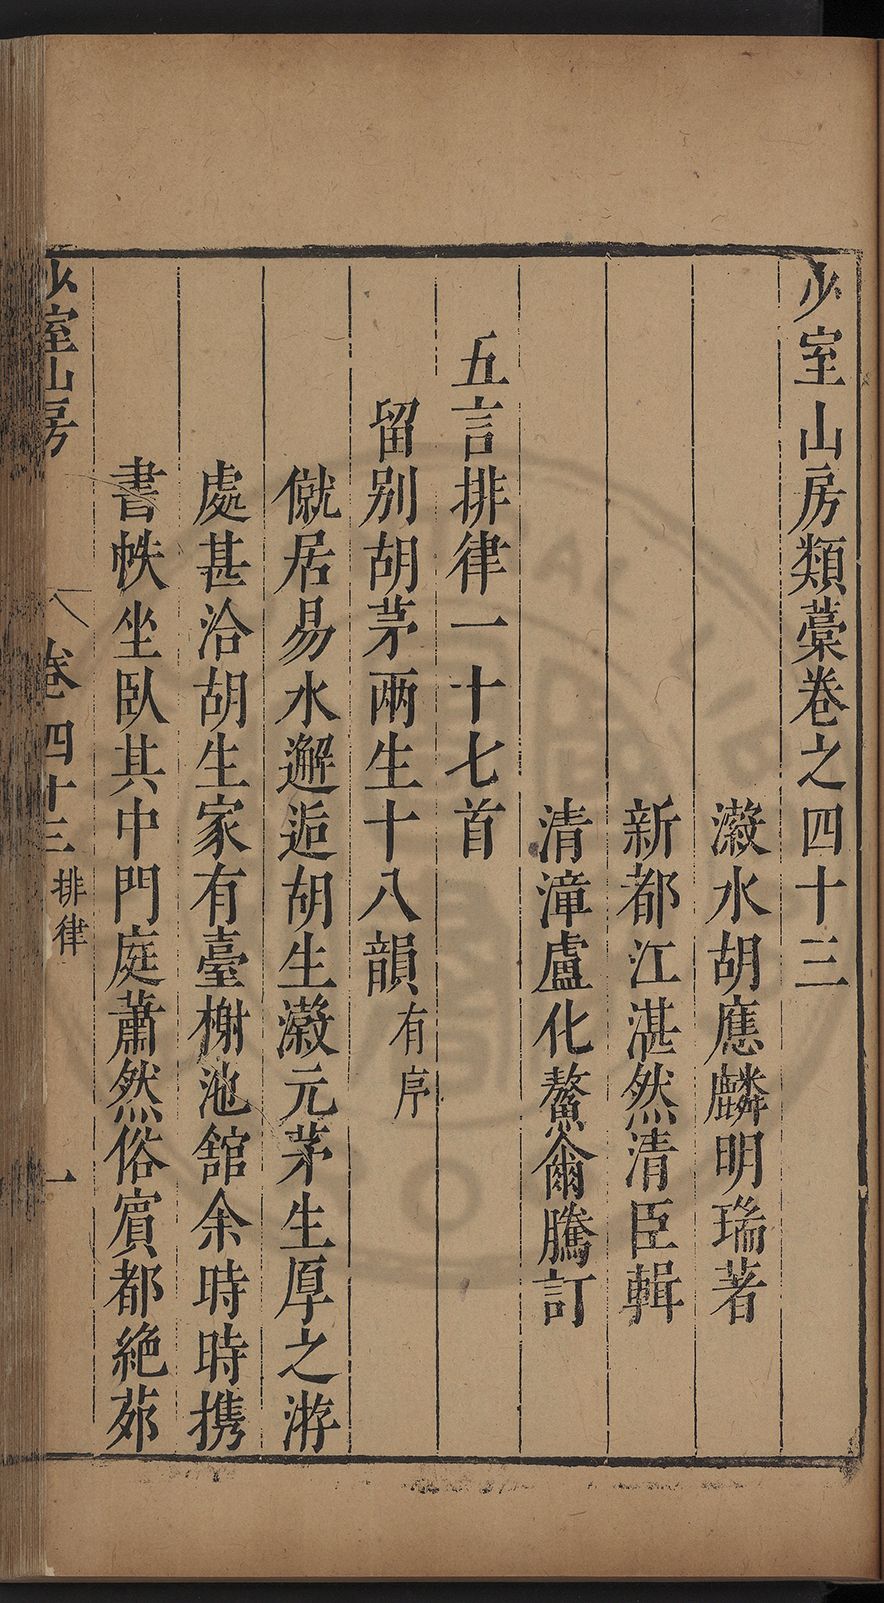 少室山房類藁卷之四十三
瀫水胡應麟明瑞著
新都江湛然清臣輯
清漳盧化鰲爾騰訂
五言排律一十七首
留别胡茅兩生十八韻有序
僦居易水邂逅胡生瀫元茅生厚之游
處甚洽胡生家有臺榭池舘余時時携
書帙坐臥其中門庭蕭然俗賓都絶茆
少室山房 卷四十三 排律 一